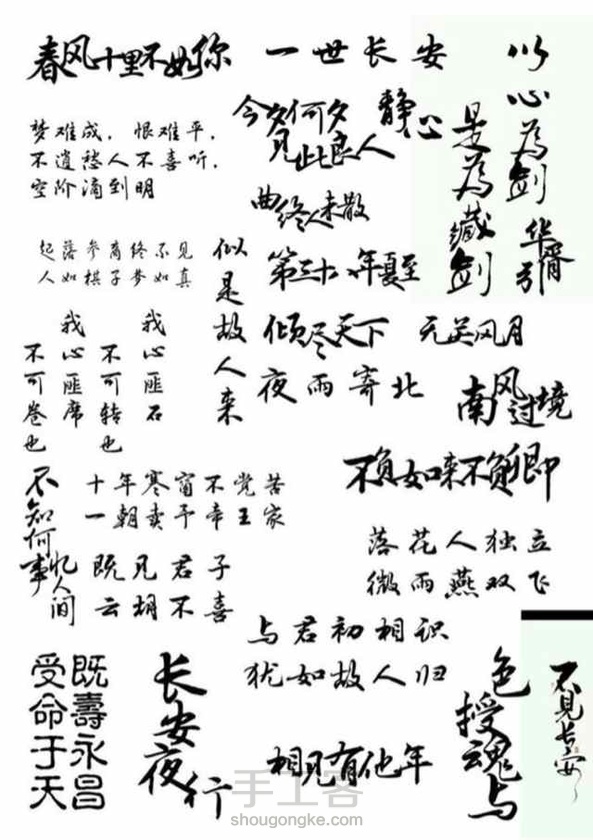 春风十里不如你
一世长安
以心為剑
是為藏剑
华胥引
今夕何夕
见此良人
静心
梦难成，恨难平，
不道愁人不喜听，
空阶滴到明
曲终人未散
起落参商终不见
人如棋子梦如真
似是故人来
第三十八年夏至
倾尽天下
无关风月
夜雨寄北
南风过境
我心匪石
不可转也
我心匪席
不可卷也
不负如来不负卿
不知何事
忆人间
十年寒窗不觉苦
一朝卖予帝王家
既见君子
云胡不喜
落花人独立
微雨燕双飞
与君初相识
犹如故人归
受命于天
既壽永昌
长安夜行
相见有他年
色授魂与
不见长安
手工客
shougongke.com